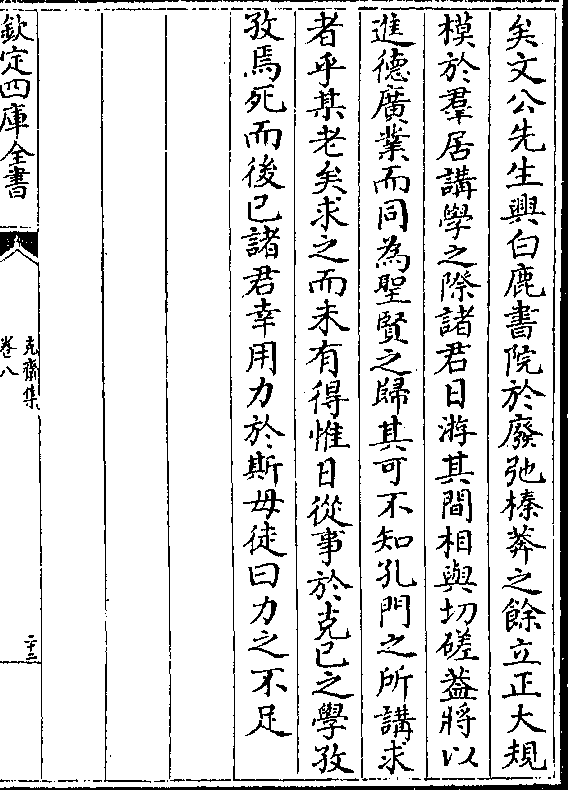 矣文公先生興白鹿書院於廢弛榛莽之餘立正大規
模於羣居講學之際諸君日游其間相與切磋葢將以
進德廣業而同為聖賢之歸其可不知孔門之所講求
者乎某老矣求之而未有得惟日從事於克已之學孜
孜焉死而後已諸君幸用力於斯毋徒曰力之不足
欽定四庫全書
克齋集
卷八
二十三